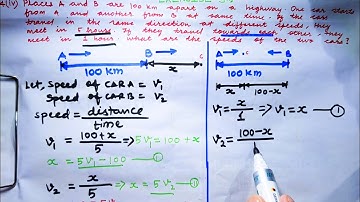 (iv) Places A and B are 100 km apart on a highway. One car starts
from A and another from B at same time. If the cars
travel in the same direction at different speeds, they
meet in 5 hours. If they travel towards each other, they
meet in 1 hour. What are the speeds of the two cars?
A B C
100 km x
Let, Speed of CAR A = V₁
Speed of CAR B = V₂
Speed = distance / time
V₁ = (100+x)/5 ⇒ 5V₁ = 100 + x
x = 5V₁ - 100 — ①
V₂ = x/5 ⇒ x = 5V₂ — ⑪
A B
100 km
x 100-x
V₁ = x/1 ⇒ V₁ = x — ①
V₂ = 100-x